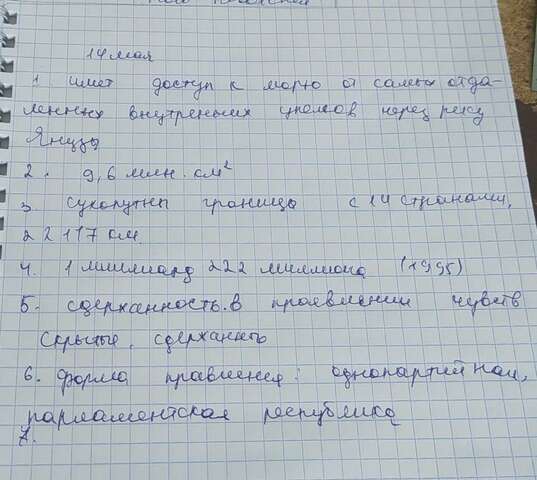 14 мая
1 имет доступ к морю от самых отда-
ленных внутренних уголков через реку
Янцзы
2. 9,6 млн. см²
3 сухопутны границы с 14 странами,
22 117 см.
4. 1 миллиард 222 миллиона (1995)
5. сдержанность в проявлении чувств
скрытые, сдержанны
6. форма правления: однопартийная,
парламентская республика
7.